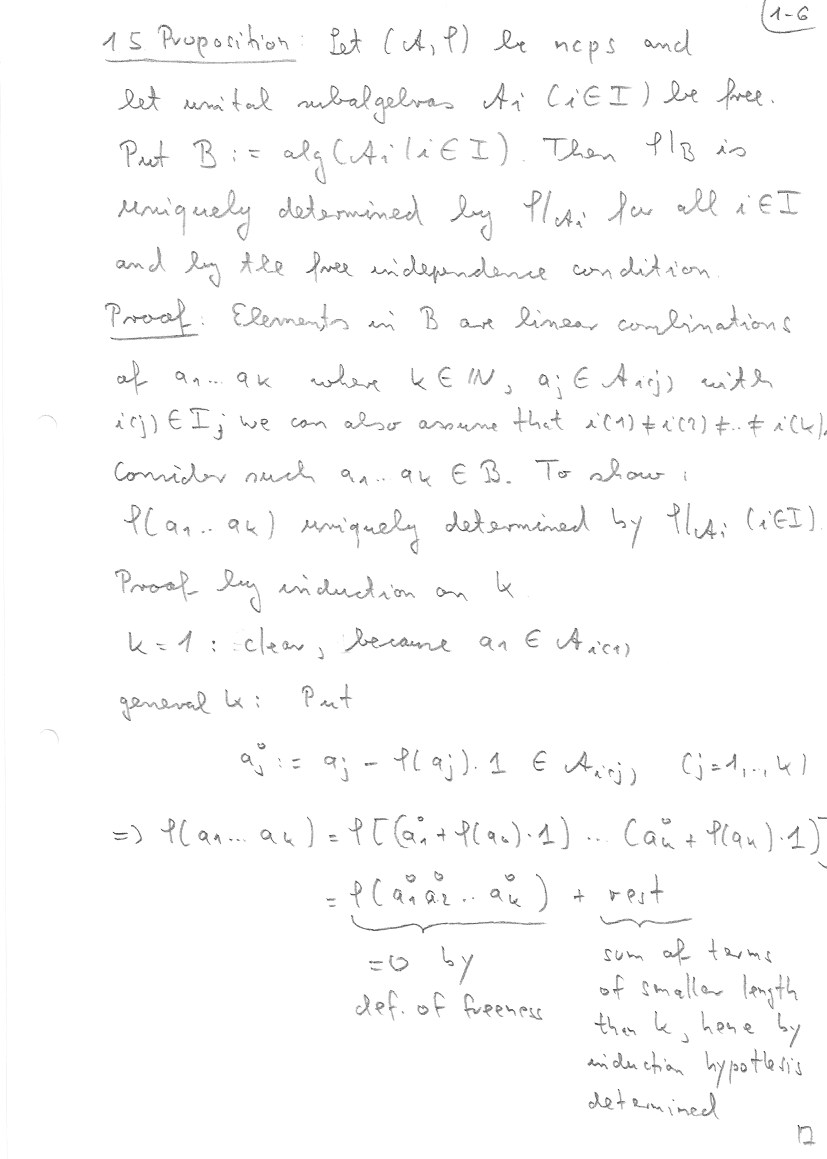 1-6
1 5 Proposition: Let (A, φ) be ncps and
let unital subalgebras Ai (i∈I) be free.
Put B := alg(Ai | i∈I). Then φ|B is
uniquely determined by φ|Ai for all i∈I
and by the free independence condition.
Proof: Elements in B are linear combinations
of a1...ak where k∈ℕ, aj∈Ai(j) with
i(j)∈I; we can also assume that i(1)≠i(2)≠..≠i(k).
Consider such a1..ak ∈ B. To show:
φ(a1..ak) uniquely determined by φ|Ai (i∈I).
Proof by induction on k
k=1: clear, because a1 ∈ Ai(1)
general k: Put
aj° := aj - φ(aj)·1 ∈ Ai(j) (j=1,..,k)
=> φ(a1...ak) = φ[(a1° + φ(a1)·1) ... (ak° + φ(ak)·1)]
= φ(a1° a2° .. ak°) + rest
=0 by
def. of freeness
sum of terms
of smaller length
than k, hene by
induction hypothesis
determined
□